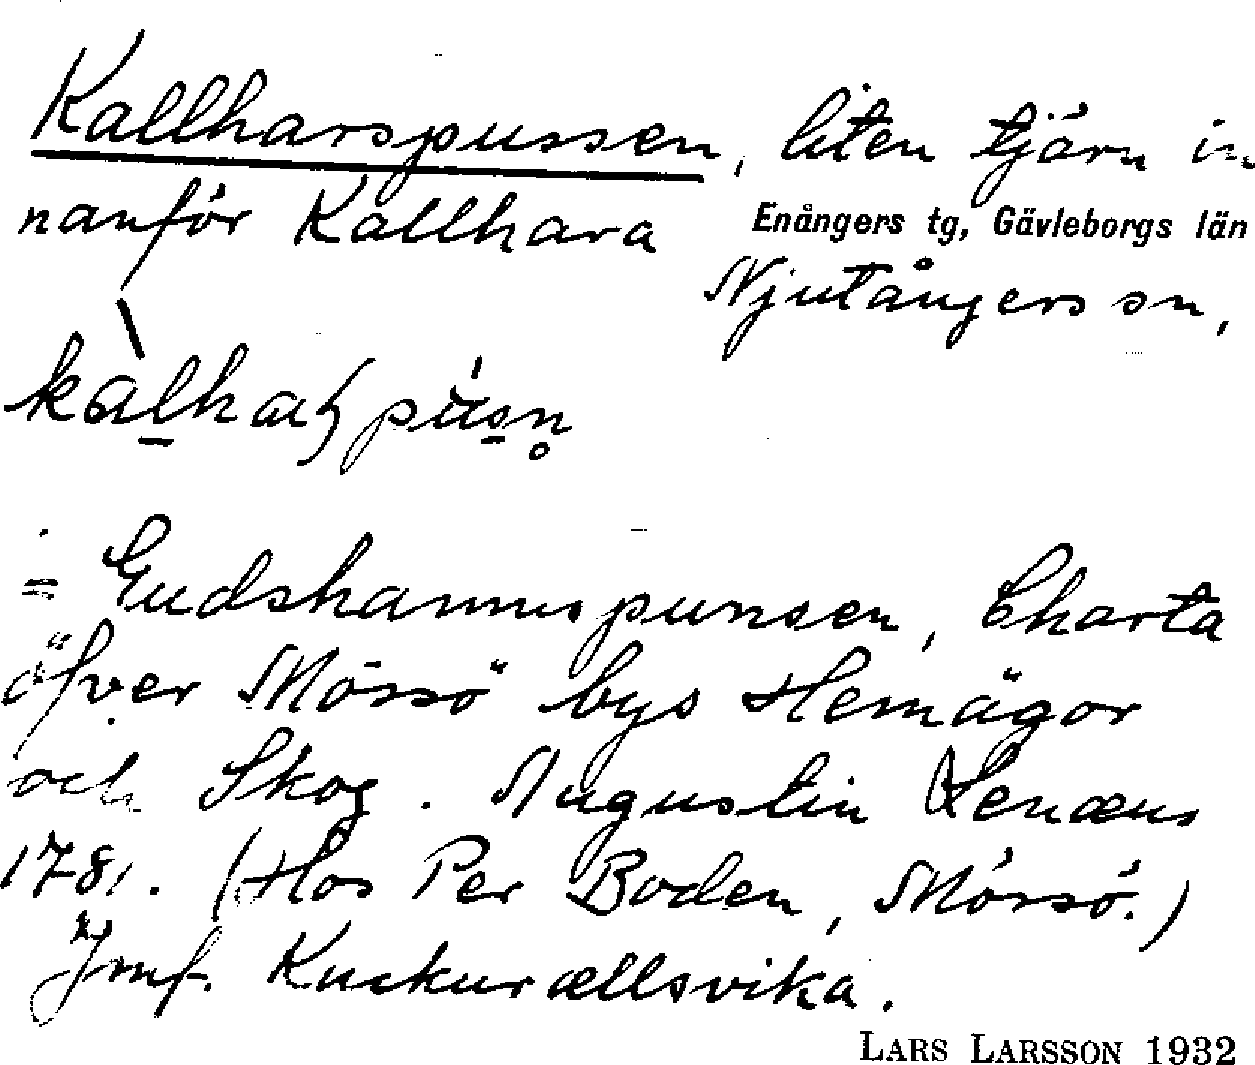 Kallharspussen, liten tjärn in
nanför Kallhara
Enångers tg, Gävleborgs län
Njutångers sn,
= Gudshamnspunsen, Charta
öfver Mössö bys Hemägor
och Skog. Augustin Lenæus
1781. (Hos Per Boden, Mössö.)
Jmf. Kuckurællsvika.
LARS LARSSON 1932